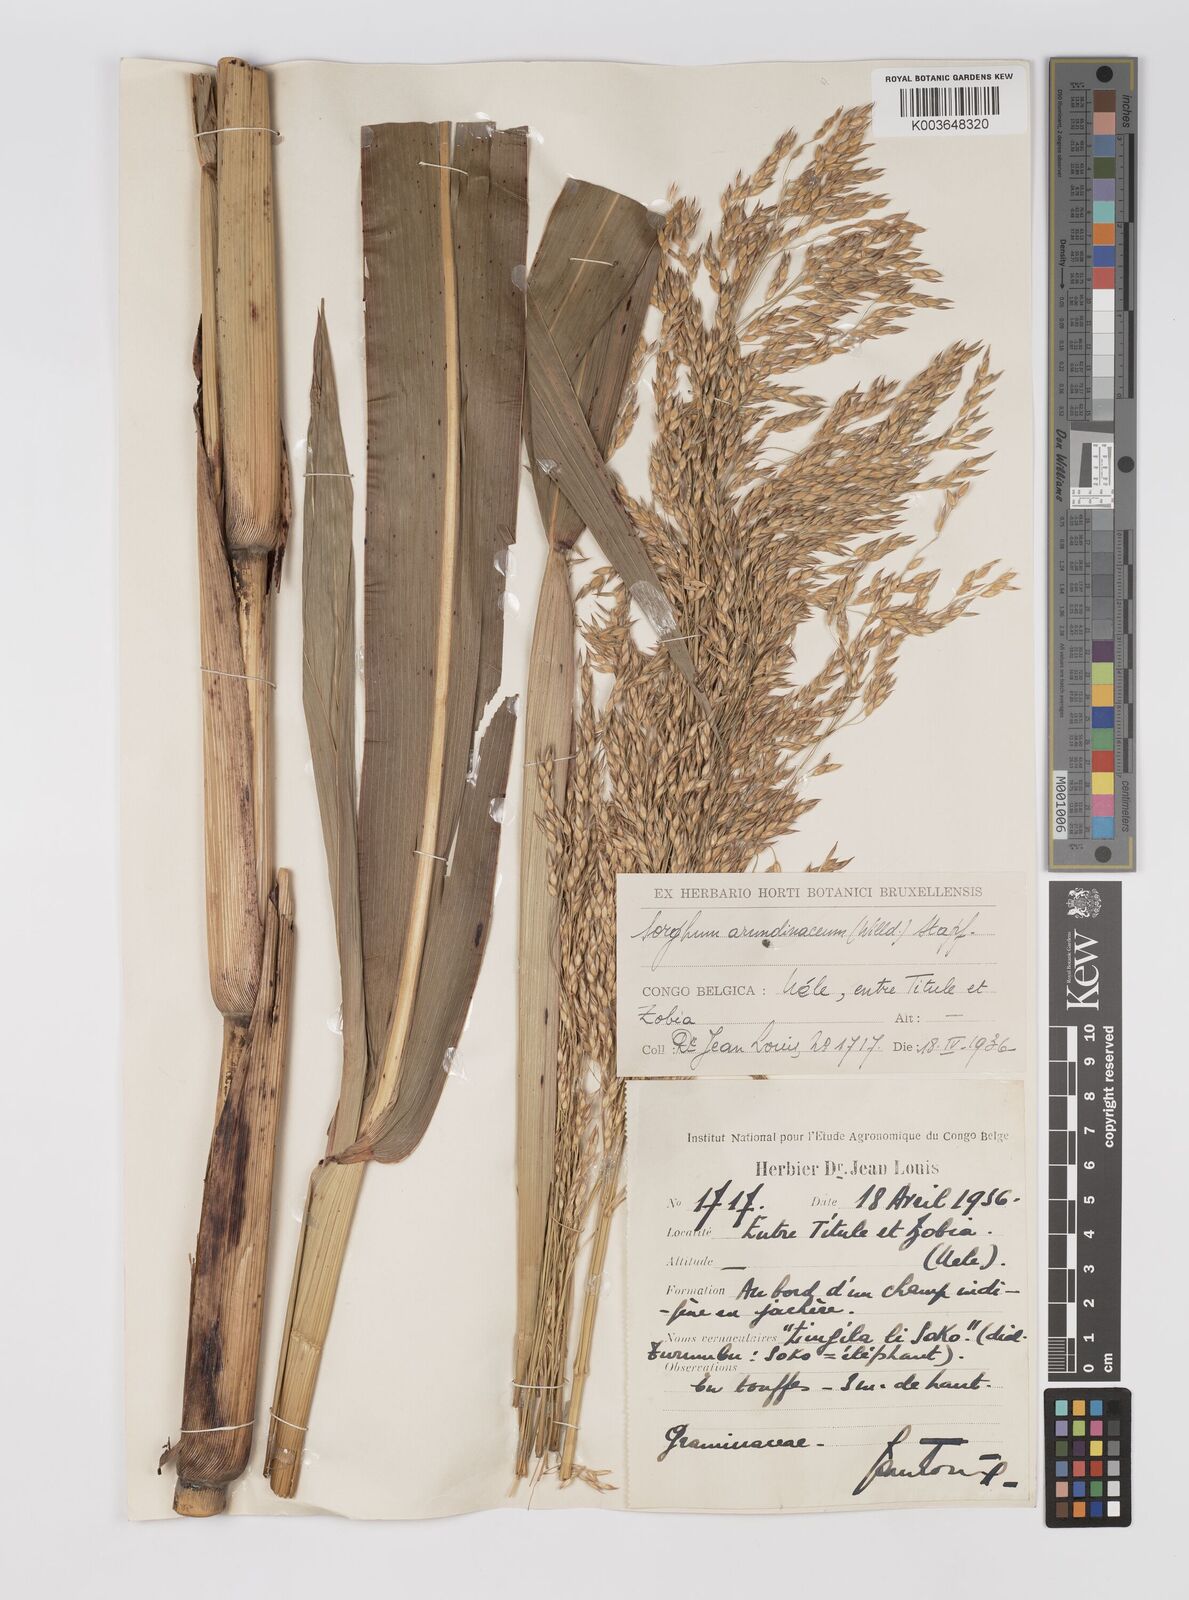 ROYAL BOTANIC GARDENS KEW
K003648320
EX HERBARIO HORTI BOTANICI BRUXELLENSIS
Sorghum arundinaceum (Willd.) Stapf.
CONGO BELGICA : Uéle, entre Titule et
Zobia Alt : —
Coll : Dr Jean Louis, no 1717. Die : 18.IV.1936
Institut National pour l'Etude Agronomique du Congo Belge
Herbier Dr. Jean Louis
No 1717. Date 18 Avril 1936.
Localité Entre Titule et Zobia.
Altitude — (Uele).
Formation Au bord d'un champ indi-
-gène en jachère.
Noms vernaculaires "Lingila li Soko." (dial.
Turumbu : Soko = éléphant).
Observations
En touffes - 3 m. de haut.
Graminaceae -
inches
Density
Don Williams
M001006
centimeters
Kew
Royal Botanic Gardens
copyright reserved
0 1 2 3 4 5 6 7 8 9 10
cm